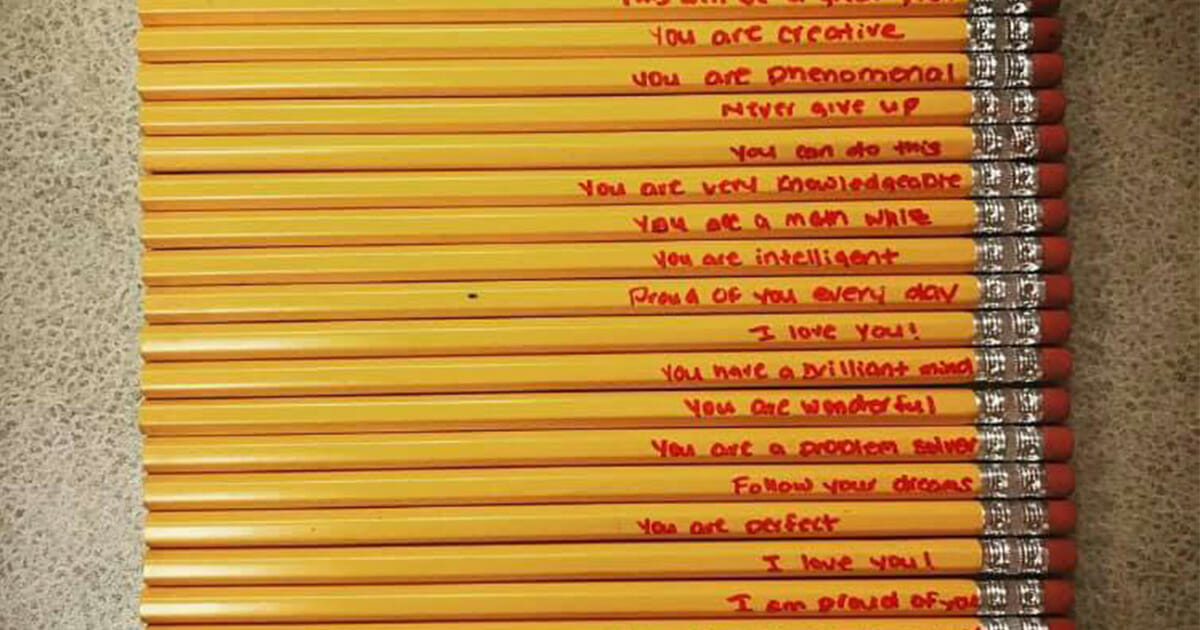 You are creative
you are phenomenal
Never give up
you can do this
You are very knowledgeable
You are a math whiz
You are intelligent
Proud of you every day
I love you!
You have a brilliant mind
You are wonderful
You are a problem solver
Follow your dreams
You are perfect
I love you!
I am proud of you